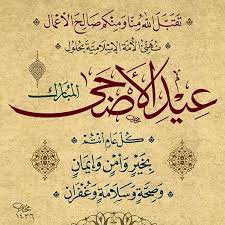 تقبل الله منا ومنكم صالح الأعمال
نهنئ الأمة الإسلامية بحلول
عيد الأضحى
المبارك
كل عام أنتم
بخير وأمن وإيمان
وصحة وسلامة وغفران
١٤٣٦